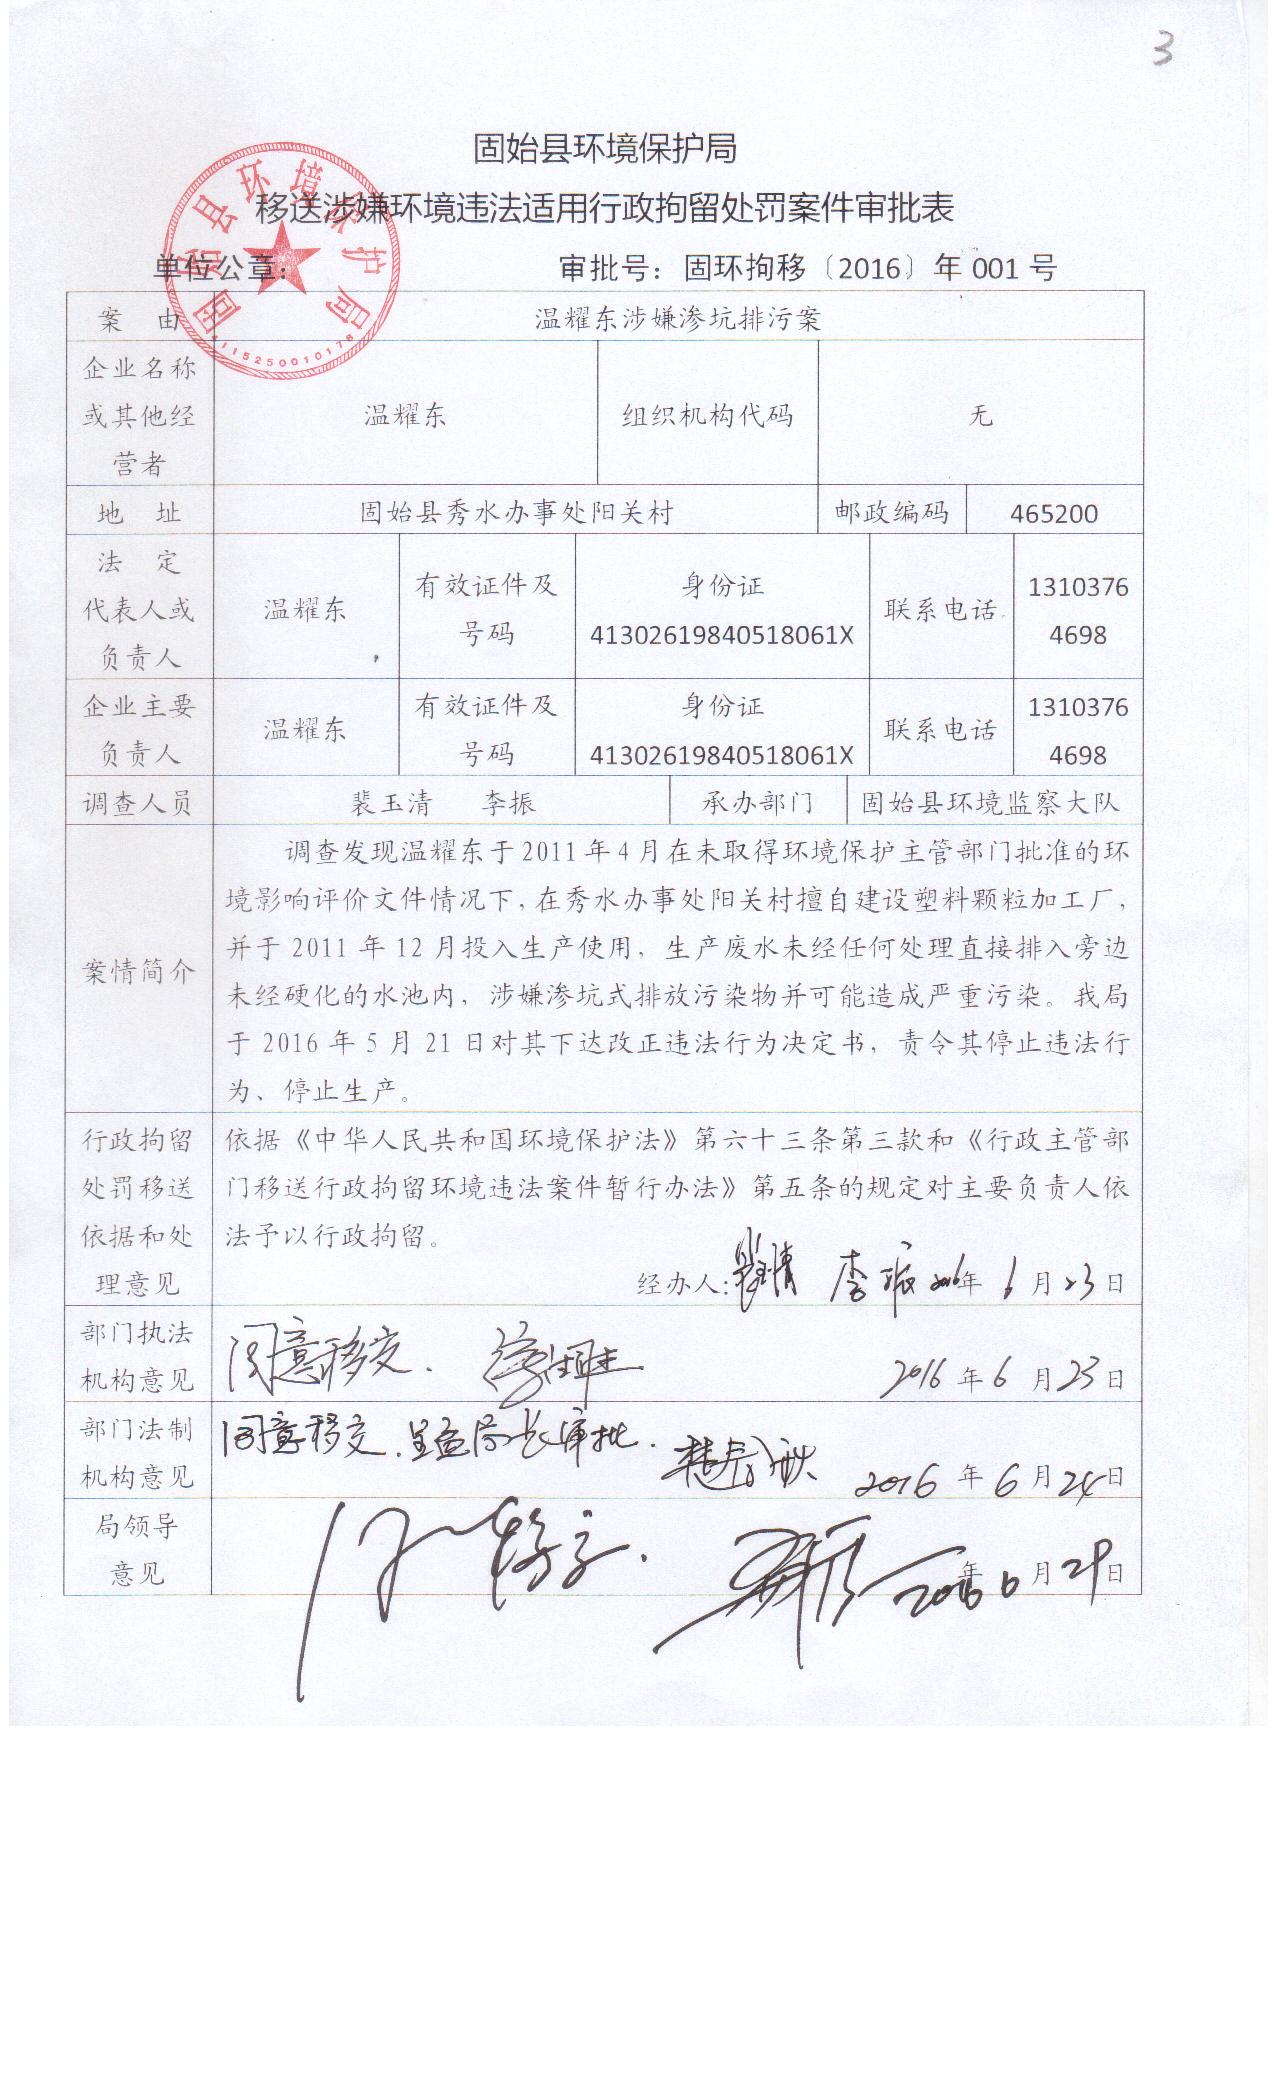 3
固始县环境保护局
移送涉嫌环境违法适用行政拘留处罚案件审批表
单位公章： 审批号：固环拘移〔2016〕年 001 号
固始县环境保护局
4115250010178
案 由 温耀东涉嫌渗坑排污案
企业名称
或其他经
营者
温耀东 组织机构代码 无
地 址 固始县秀水办事处阳关村 邮政编码 465200
法 定
代表人或
负责人
温耀东
有效证件及
号码
身份证
41302619840518061X
联系电话
1310376
4698
企业主要
负责人
温耀东
有效证件及
号码
身份证
41302619840518061X
联系电话
1310376
4698
调查人员 裴玉清 李振 承办部门 固始县环境监察大队
案情简介
调查发现温耀东于 2011 年 4 月在未取得环境保护主管部门批准的环
境影响评价文件情况下，在秀水办事处阳关村擅自建设塑料颗粒加工厂，
并于 2011 年 12 月投入生产使用，生产废水未经任何处理直接排入旁边
未经硬化的水池内，涉嫌渗坑式排放污染物并可能造成严重污染。我局
于 2016 年 5 月 21 日对其下达改正违法行为决定书，责令其停止违法行
为、停止生产。
行政拘留
处罚移送
依据和处
理意见
依据《中华人民共和国环境保护法》第六十三条第三款和《行政主管部
门移送行政拘留环境违法案件暂行办法》第五条的规定对主要负责人依
法予以行政拘留。
经办人：裴玉清 李振 2016年 6 月 23 日
部门执法
机构意见
同意移交． 2016 年 6 月 23 日
部门法制
机构意见
同意移交．呈孟局长审批． 2016 年 6 月 24 日
局领导
意见
2016 年 6 月 29 日